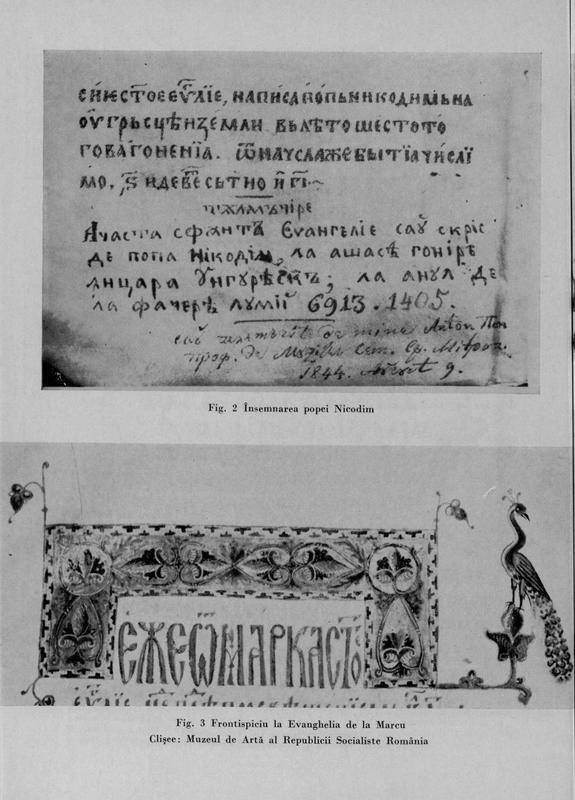 СИѤ С҃ТОЕ ЕѴ҃ЛІЕ, НАПИСА ПОПЬ НИКОДИМЬ НА
ОУГРЬСЦѢИ ЗЕМЛИ ВЬ ЛѢТО ШЕСТОТО
ГО ВА ГОНЕНІА. Ѿ НАУ СЛА ЖЕ БЫТІА ЧИСЛІ
МО,
тълмъчіре
Ачаста сфѫнтъ Еѵангеліе саꙋ скріс
де попа Нікодім, ла ашасѣ гоніре
ꙟ цара Унгурѣскъ; ла анул де
ла фачерѣ лумії 6913. 1405.
саꙋ де міне Антон Пан
проф. де Сем. Сф. Мітроп.
1844. Август 9.
Fig. 2 Însemnarea popei Nicodim
ЕЖЕ Ѿ МАРКА СТ҃О
Fig. 3 Frontispiciu la Evanghelia de la Marcu
Clișee: Muzeul de Artă al Republicii Socialiste România